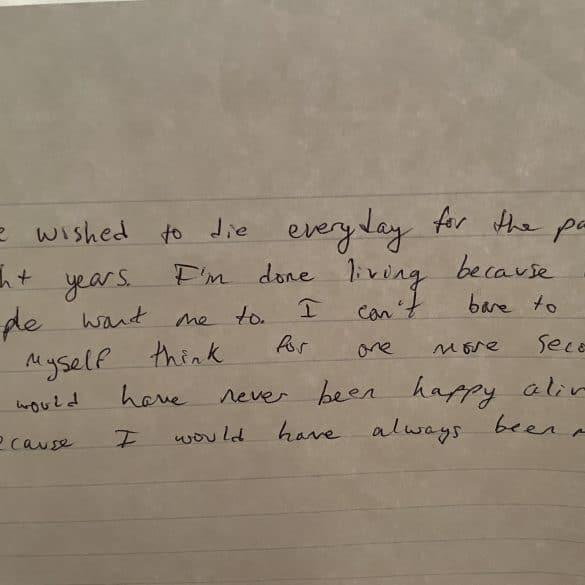 wished to die everyday for the pa
ht years. I'm done living because
ple want me to. I can't bare to
myself think for one more seco
would have never been happy aliv
ecause I would have always been